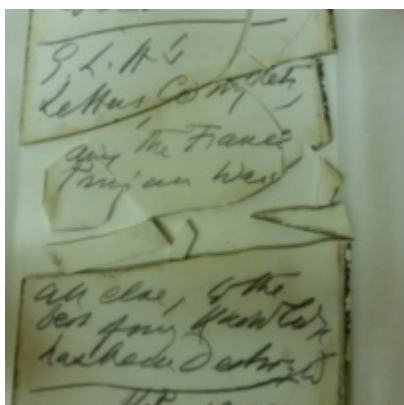 G. L. H's
Letters Complete,
during the Franco
Prussian War
all else, to the
best of my knowledge
has been Destroyed